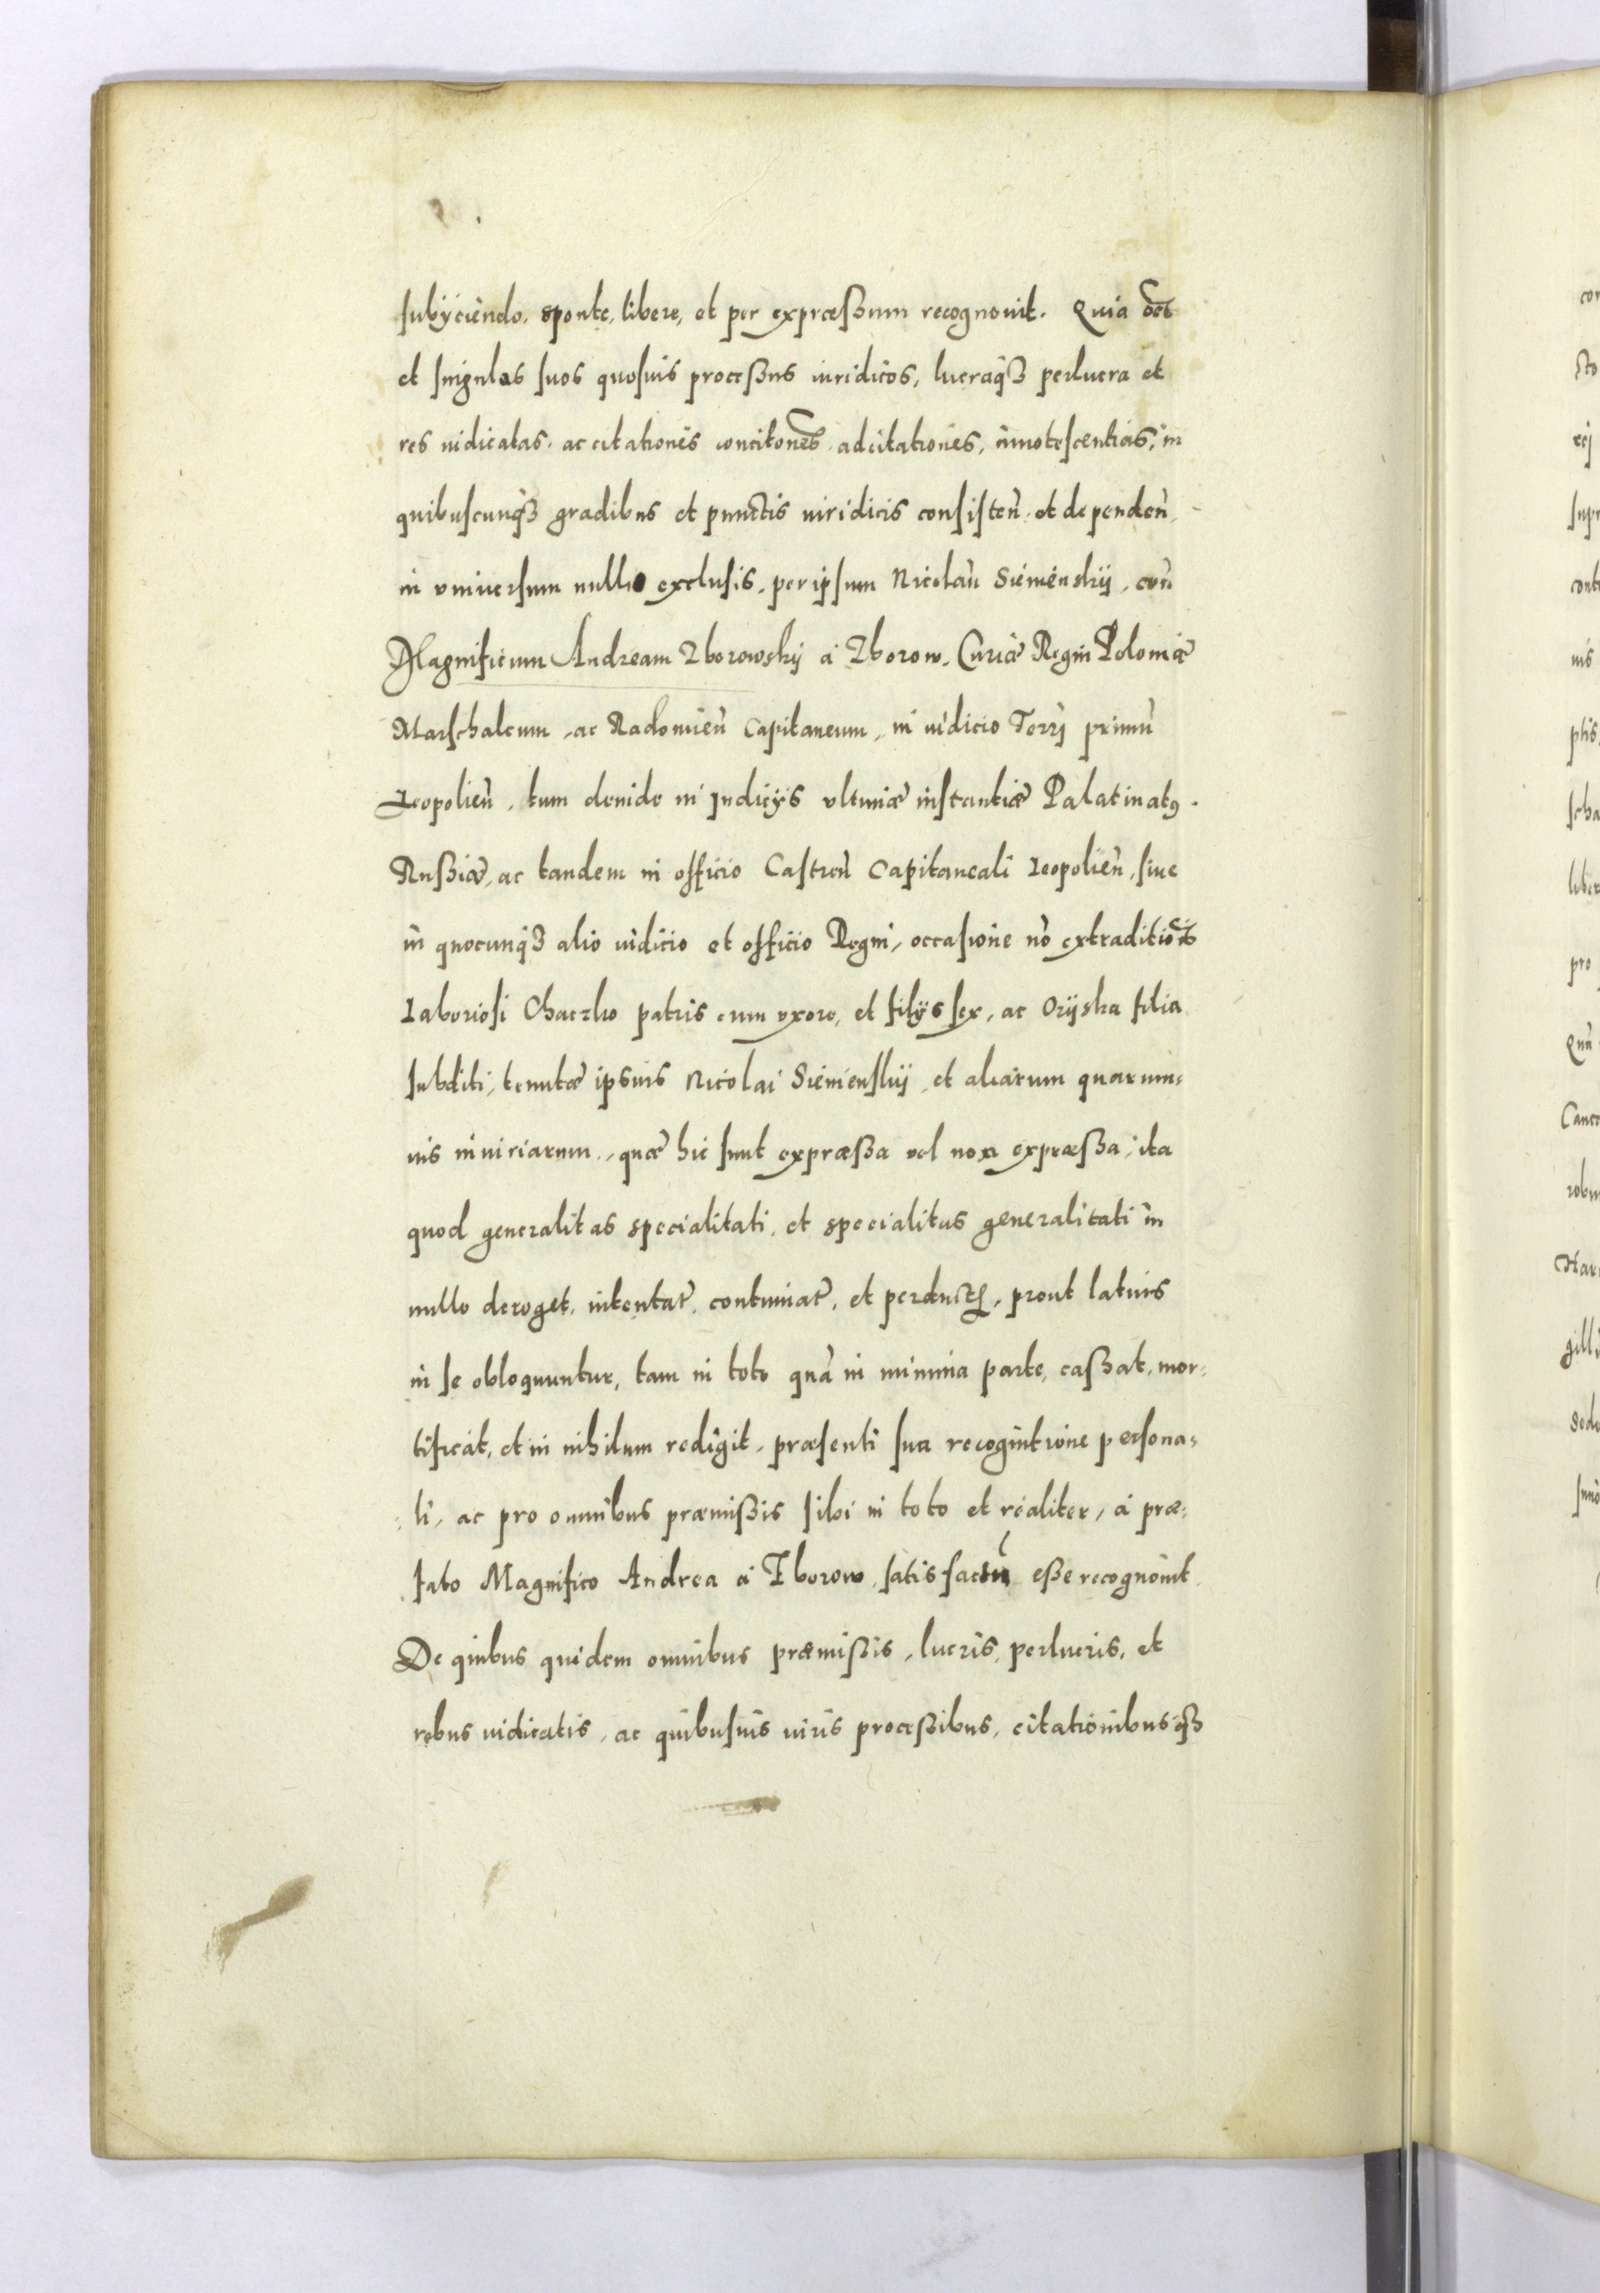 subÿciendo, sponte, libere, et per expræssum recognouit. Quia oēs
et singulos suos quosuis processus iuridicos, lucraq3 perlucra et
res iudicatas, ac citationes concitones adcitationes, innotescentias, in
quibuscunq3 gradibus et punctis iuridicis consisteñ et dependeñ
in vniuersum nullis exclusis, per ipsum Nicolaū Siemienskij, con
Magnificum Andream Zborowskij à Zborow, Curiæ Regni Poloniæ
Marschalcum, ac Radomieñ Capitaneum, in iudicio Terrj primū
Leopolieñ, tum deinde in Iudicÿs vltimæ instantiæ Palatinatq
Russiæ, ac tandem in officio Castreñ Capitaneali Leopolieñ, siue
in quocunq3 alio iudicio et officio Regni, occasione nō extraditiois
Laboriosi Chaczko patris cum vxore, et filÿs sex, ac Orÿska filia
subditi, tenutæ ipsius Nicolai Siemienskij, et aliarum quarum=
uis iniuriarum, quæ hic sunt expræssa vel non expræssa, ita
quod generalitas specialitati, et specialitas generalitati in
nullo deroget, intentat, continuat, et perduct, prout latius
in se obloquuntur, tam in toto quā in minima parte, cassat, mor=
tificat, et in nihilum redigit, præsenti sua recognitione persona=
=li, ac pro omnibus præmissis sibi in toto et realiter, à præ=
fato Magnifico Andrea à Zborow, satisfactū esse recognouit.
De quibus quidem omnibus præmissis, lucris, perlucris, et
rebus iudicatis, ac quibusuis iuris processibus, citationibusq3